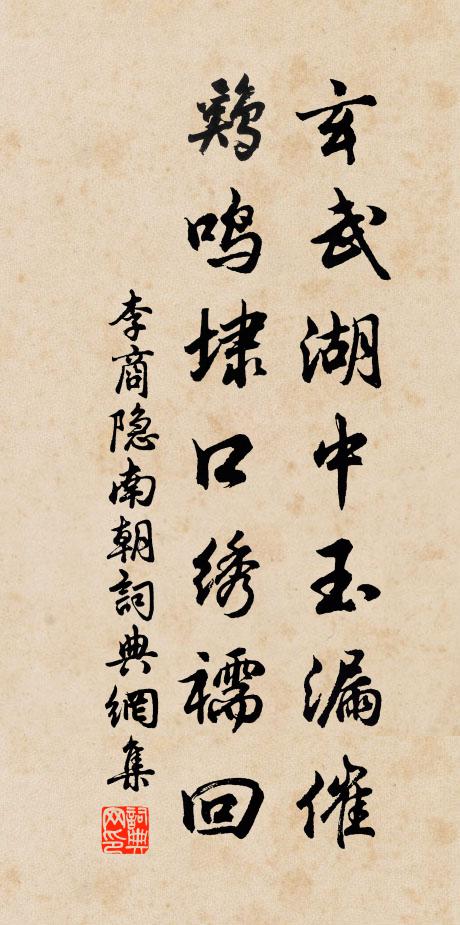 玄武湖中玉漏催
鷄鳴埭口绣襦回
李商隐南朝詞典網集
詞典网印